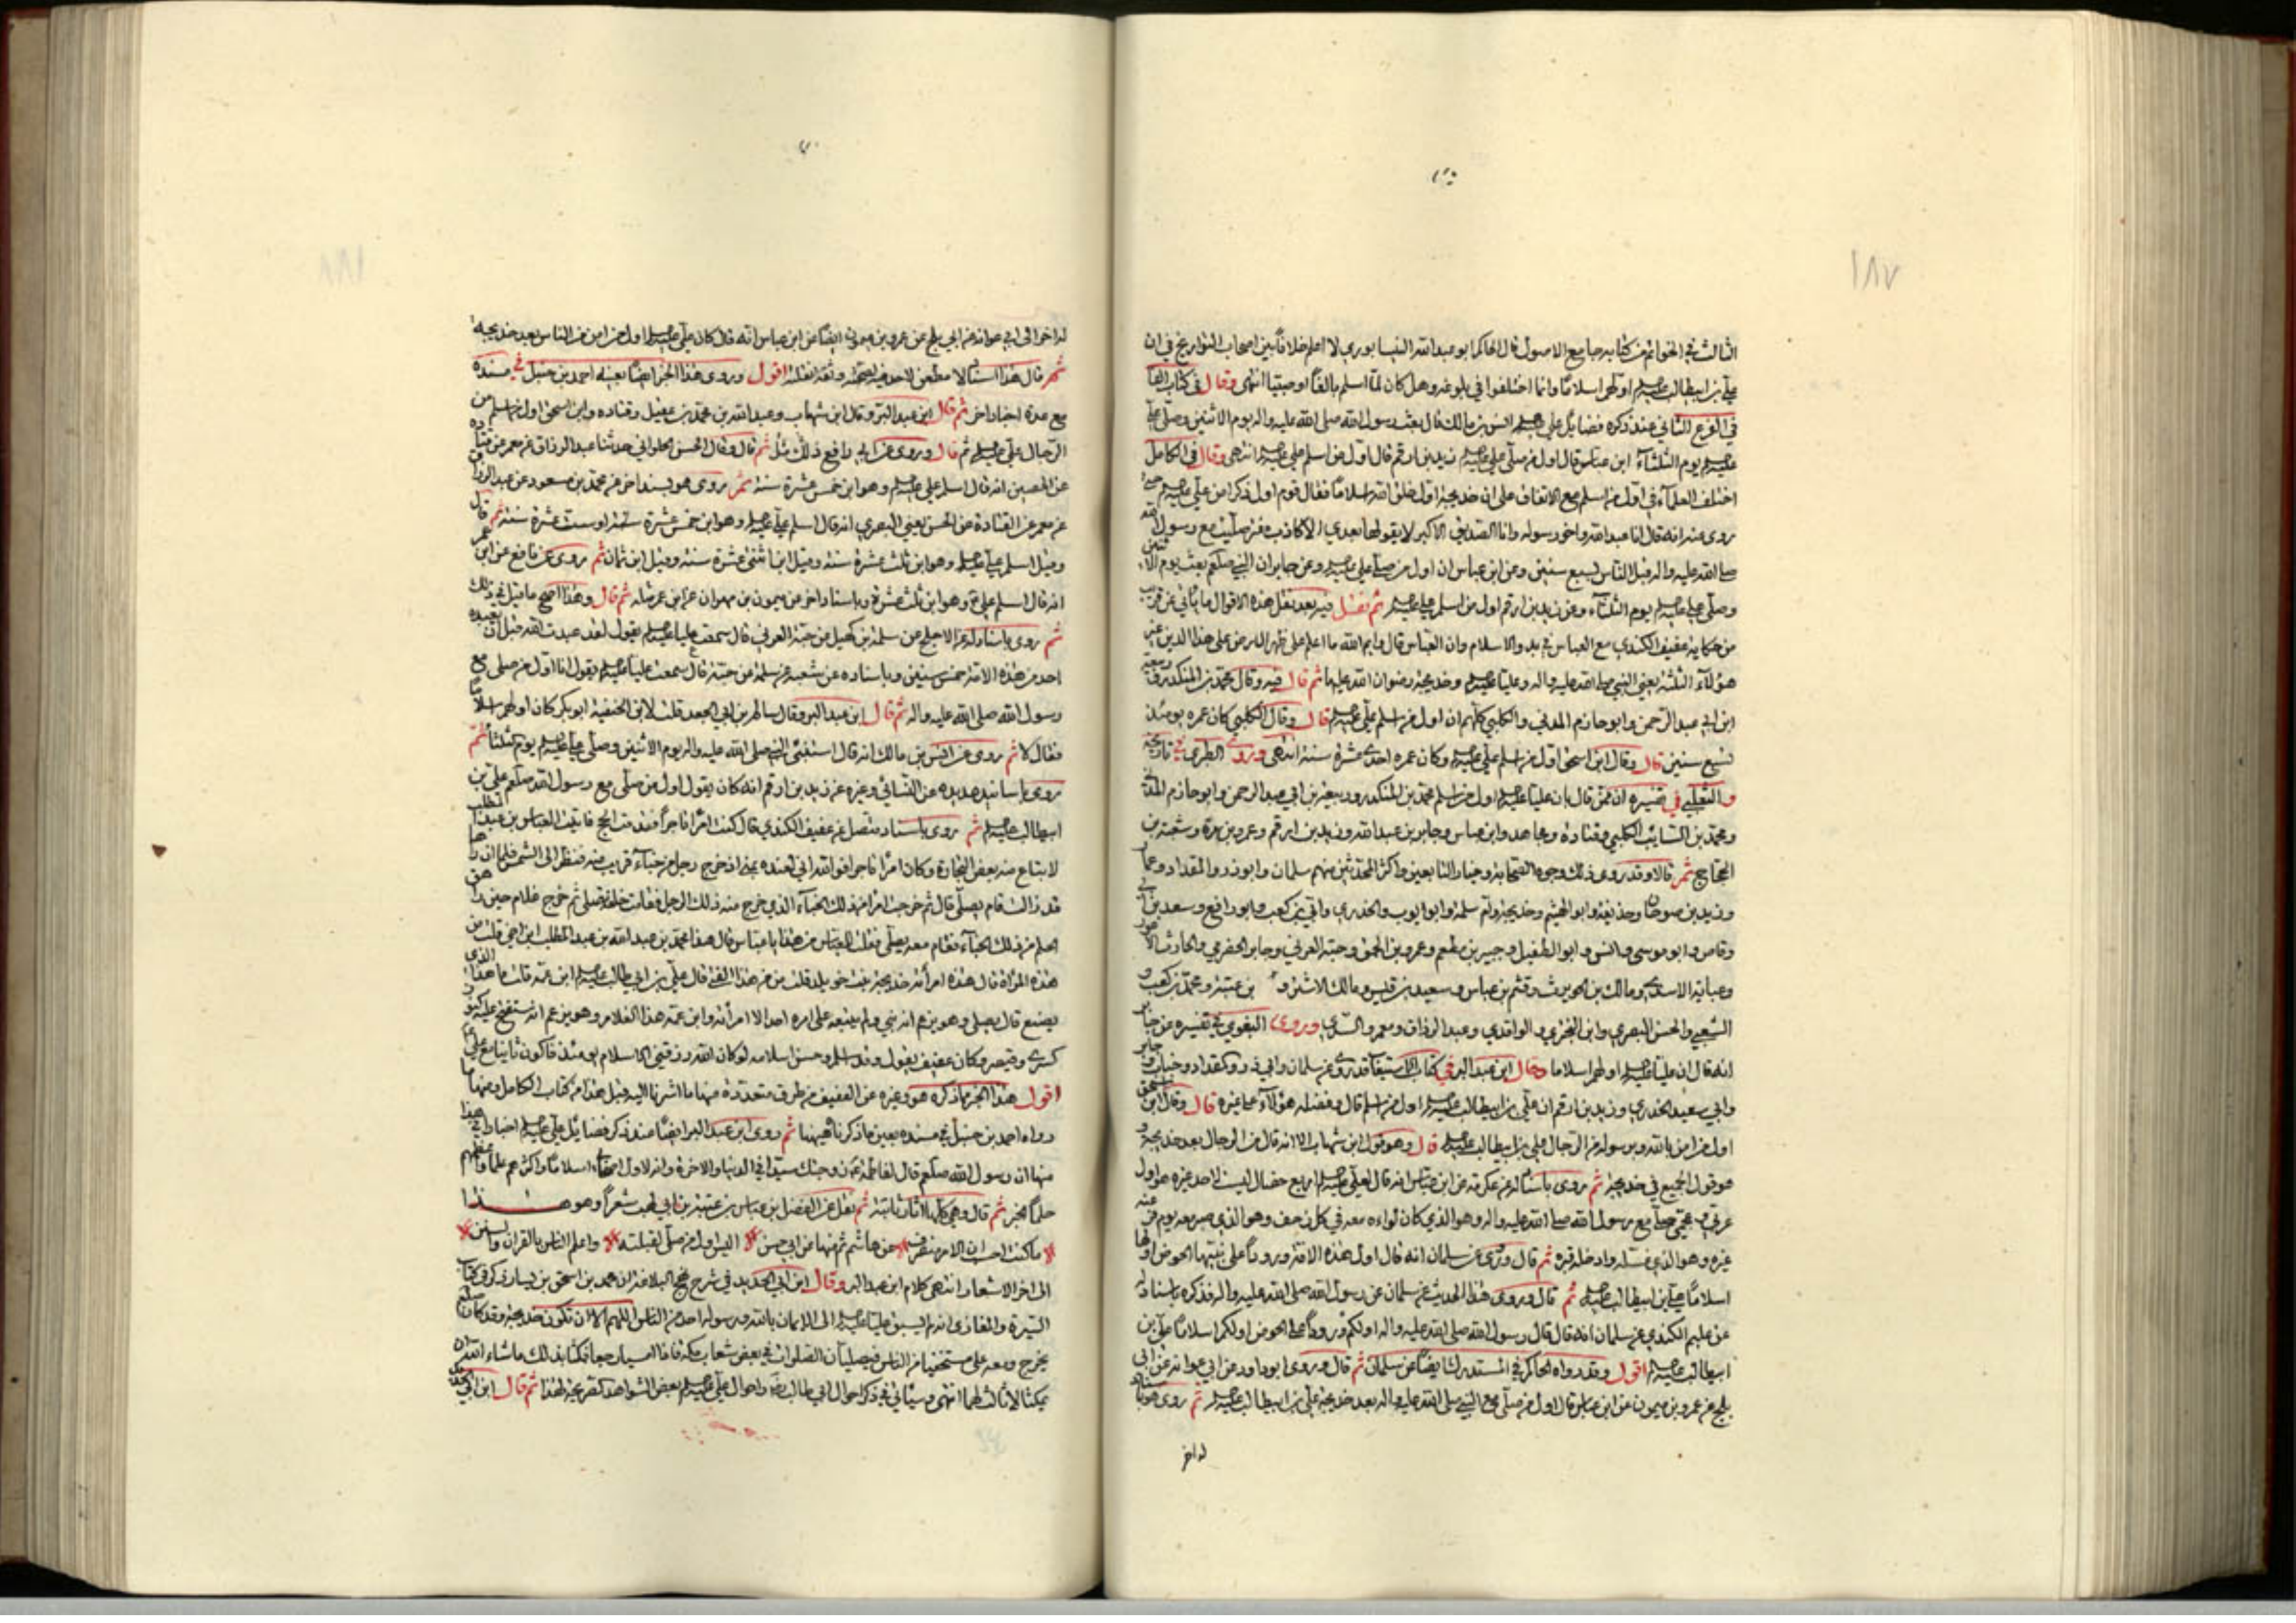 ١٨٧
الثالث في الخواتم من كتابه جامع الاصول قال الحاكم ابو عبد الله النيسابوري لا اعلم خلافا بين اصحاب التواريخ في ان
علي بن ابيطالب عليه السلم اولهم اسلاما وانما اختلفوا في بلوغه وهل كان لما اسلم بالغا او صبيا انتهى وقال في كتاب
في الفرع الثاني عند ذكره فضايل علي عليه السلم انس بن مالك قال بعث رسول الله صلى الله عليه واله يوم الاثنين وصلى علي
عليه السلم يوم الثلثاء ابن عباس قال اول من صلى علي عليه السلم زيد بن ارقم قال اول من اسلم علي عليه السلم انتهى وقال في الكامل
اختلف العلماء في اول من اسلم مع الاتفاق على ان خديجة اول خلق الله اسلاما فقال قوم اول ذكر امن علي عليه السلم
روى عنه انه قال انا عبد الله واخو رسوله وانا الصديق الاكبر لا يقولها بعدي الا كاذب مفتر صليت مع رسول الله
صلى الله عليه واله قبل الناس بسبع سنين وعن ابن عباس ان اول من صلى علي عليه السلم وعن جابر ان النبي صلعم بعث يوم الاثنين
وصلى علي عليه السلم يوم الثلثاء وعن زيد بن ارقم اول من اسلم علي عليه السلم ثم نقل فيه بعد نقل هذه الاقوال ما ياتي عن قريب
من حكاية عفيف الكندي مع العباس في بدو الاسلام وان العباس قال وايم الله ما اعلم على ظهر الارض على هذا الدين غير
هؤلاء الثلثة يعني النبي صلى الله عليه واله وعليا عليه السلم وخديجة رضوان الله عليها ثم قال فيه وقال محمد بن المنكدر وربيعة
ابن ابي عبد الرحمن وابو حازم المدني والكلبي كلهم ان اول من اسلم علي عليه السلم قال وقال الكلبي كان عمره يومئذ
تسع سنين قال وقال ابن اسحق اول من اسلم علي عليه السلم وكان عمره احدى عشرة سنة انتهى وروى الطبري في تاريخه
والثعلبي في تفسيره ان ممن قال بان عليا عليه السلم اول من اسلم محمد بن المنكدر وربيعة بن ابي عبد الرحمن وابو حازم المدني
ومحمد بن السايب الكلبي وقتادة ومجاهد وابن عباس وجابر بن عبد الله وزيد بن ارقم وعمرو بن مرة وشعبة بن
الحجاج ثم قالا وقد روى ذلك وجوه الصحابة وخيار التابعين واكثر المحدثين منهم سلمان وابوذر والمقداد وعمار
وزيد بن صوحان وحذيفة وابو الهيثم وخديجة وام سلمة وابو ايوب والخدري وابي بن كعب وابو رافع وسعد بن ابي
وقاص وابو موسى وانس وابو الطفيل وجبير بن مطعم وعمرو بن الحمق وحبة العرني وجابر الحضرمي والحارث الاعور
وعباية الاسدي ومالك بن الحويرث وقثم بن عباس وسعيد بن قيس ومالك الاشتر و بن عتبة ومحمد بن كعب و
الشعبي والحسن البصري وابن البختري والواقدي وعبد الرزاق ومعمر والسدي وروى البغوي في تفسيره عن جابر
انه قال ان عليا عليه السلم اولهم اسلاما وقال ابن عبد البر في كتاب الاستيعاب قد روى عن سلمان وابي ذر ومقداد وخباب وجابر
وابي سعيد الخدري وزيد بن ارقم ان علي بن ابيطالب عليه السلم اول من اسلم قال وفضله هؤلاء على غيره قال وقال ابن اسحق
اول من امن بالله وبرسوله من الرجال علي بن ابيطالب عليه السلم قال وهو قول ابن شهاب الا انه قال من الرجال بعد خديجة و
هو قول الجميع في خديجة ثم روى باسناد له عن عكرمة عن ابن عباس انه قال لعلي عليه السلم اربع خصال ليست لاحد غيره هو اول
عربي وعجمي صلى مع رسول الله صلى الله عليه واله وهو الذي كان لواءه معه في كل زحف وهو الذي صبر معه يوم فر عنه
غيره وهو الذي غسله وادخله قبره ثم قال وروى عن سلمان انه قال اول هذه الامة ورودا على نبيها الحوض اولها
اسلاما علي بن ابيطالب عليه السلم ثم قال وروى هذا الحديث عن سلمان عن رسول الله صلى الله عليه واله فذكره باسناد له
عن عليم الكندي عن سلمان انه قال قال رسول الله صلى الله عليه واله اولكم ورودا على الحوض اولكم اسلاما علي بن
ابيطالب عليه السلم اقول وقد رواه الحاكم في المستدرك ايضا عن سلمان ثم قال وروى ابو داود عن ابي عوانة عن ابي
بلج عن عمرو بن ميمون عن ابن عباس قال اول من صلى مع النبي صلى الله عليه واله بعد خديجة علي بن ابيطالب عليه السلم ثم روى هو
له اخر
١٨٨
له اخر الى ابي عوانة عن ابي بلج عن عمرو بن ميمون ايضا عن ابن عباس انه قال كان علي عليه السلم اول من امن من الناس بعد خديجة
ثم قال هذا اسناد لا مطعن لاحد فيه لصحته وثقة نقلته اقول وروى هذا الخبر ايضا بعينه احمد بن حنبل في مسنده
مع عدة اخبار اخر ثم قال ابن عبد البر وقال ابن شهاب وعبد الله بن محمد بن عقيل وقتاده وابن اسحق اول من اسلم من
الرجال علي عليه السلم ثم قال وروى عن ابي رافع ذلك مثل ثم قال وقال الحسن الحلواني حدثنا عبد الرزاق عن معمر عن قتاده
عن الحسن انه قال اسلم علي عليه السلم وهو ابن خمس عشرة سنة ثم روى هو بسند اخر عن محمد بن مسعود عن عبد الرزاق
عن معمر عن القتادة عن الحسن يعني البصري انه قال اسلم علي عليه السلم وهو ابن خمس عشرة سنة او ست عشرة سنة ثم قال
وقيل اسلم علي عليه السلم وهو ابن ثلث عشرة سنة وقيل ابن اثنتي عشرة سنة وقيل ابن ثمان ثم روى عن نافع عن ابن عمر
انه قال اسلم علي ع وهو ابن ثلث عشرة وباسناد اخر عن ميمون بن مهران عن ابن عمر مثله ثم قال وهذا اصح ما قيل في ذلك
ثم روى باسناد له عن الاجلح عن سلمة بن كهيل عن حبة العرني قال سمعت عليا عليه السلم يقول لقد عبدت الله قبل ان يعبده
احد من هذه الامة خمس سنين وباسناده عن شعبه عن سلمة عن حبة قال سمعت عليا عليه السلم يقول انا اول من صلى مع
رسول الله صلى الله عليه واله ثم قال ابن عبد البر وقال سالم بن ابي الجعد قلت لابن الحنفية ابو بكر كان اولهم اسلاما
فقال لا ثم روى عن انس بن مالك انه قال استنبئ النبي صلى الله عليه واله يوم الاثنين وصلى علي عليه السلم يوم الثلثا ثم
روى باسانيد عديده عن النسائي وغيره عن زيد بن ارقم انه كان يقول اول من صلى مع رسول الله صلعم علي بن
ابيطالب عليه السلم ثم روى باسناد متصل عن عفيف الكندي قال كنت امرا تاجرا فقدمت الحج فاتيت العباس بن عبد المطلب
لابتاع منه بعض التجارة وكان امرا تاجرا فوالله اني لعنده بمنى اذ خرج رجل من خباء قريب منه فنظر الى الشمس فلما ان راها
قد زالت قام يصلي قال ثم خرجت امراة من ذلك الخباء الذي خرج منه ذلك الرجل فقامت خلفه تصلي ثم خرج غلام حين راهق
الحلم من ذلك الخباء فقام معه يصلي فقلت للعباس من هذا يا عباس قال هذا محمد بن عبد الله بن عبد المطلب ابن اخي قلت من
هذه المراة قال هذه امرأته خديجة بنت خويلد قلت من هذا الفتى قال علي بن ابي طالب عليه السلم ابن عمه قلت ما هذا الذي
يصنع قال يصلي وهو يزعم انه نبي ولم يتبعه على امره احد الا امرأته وابن عمه هذا الغلام وهو يزعم انه ستفتح عليه كنوز
كسرى وقيصر وكان عفيف يقول وقد اسلم وحسن اسلامه لو كان الله رزقني الاسلام يومئذ فاكون ثانيا مع علي
اقول هذا الخبر مما ذكره هو وغيره عن العفيف من طرق متعددة منها ما اشرنا اليه قبل هذا من كتاب الكامل ومنها ما
رواه احمد بن حنبل في مسنده بعين ما ذكرنا هيهنا ثم روى ابن عبد البر ايضا عند ذكر فضايل علي عليه السلم اخبارا في هذا
منها ان رسول الله صلعم قال لفاطمة ع زوجك سيد في الدنيا والاخرة وانه لاول اصحابي اسلاما واكثرهم علما واعظمهم
حلما الخبر ثم قال وهي كلها اثار ثابتة ثم نقل عن الفضل بن عباس بن عتبة بن ابي لهب شعرا وهو هذا
ما كنت احسب ان الامر منصرف عن هاشم ثم منها عن ابي حسن اليس اول من صلى لقبلته واعلم الناس بالقران والسنن
الى اخر الاشعار انتهى كلام ابن عبد البر وقال ابن ابي الحديد في شرح نهج البلاغة ان محمد بن اسحق بن يسار ذكر في كتاب
السيرة والمغازي انه لم يسبق عليا عليه السلم الى الايمان بالله ورسوله احد من الناس اللهم الا ان تكون خديجة وقد كان صلعم
يخرج ومعه علي مستخفيا من الناس فيصليان الصلوات في بعض شعاب مكة فاذا امسيا رجعا فمكثا بذلك ما شاء الله ان
يمكثا لا ثالث لهما انتهى وسيأتي في ذكر احوال ابي طالب رضه واحوال علي عليه السلم بعض الشواهد كقرينة لهذا ثم قال ابن ابي الحديد